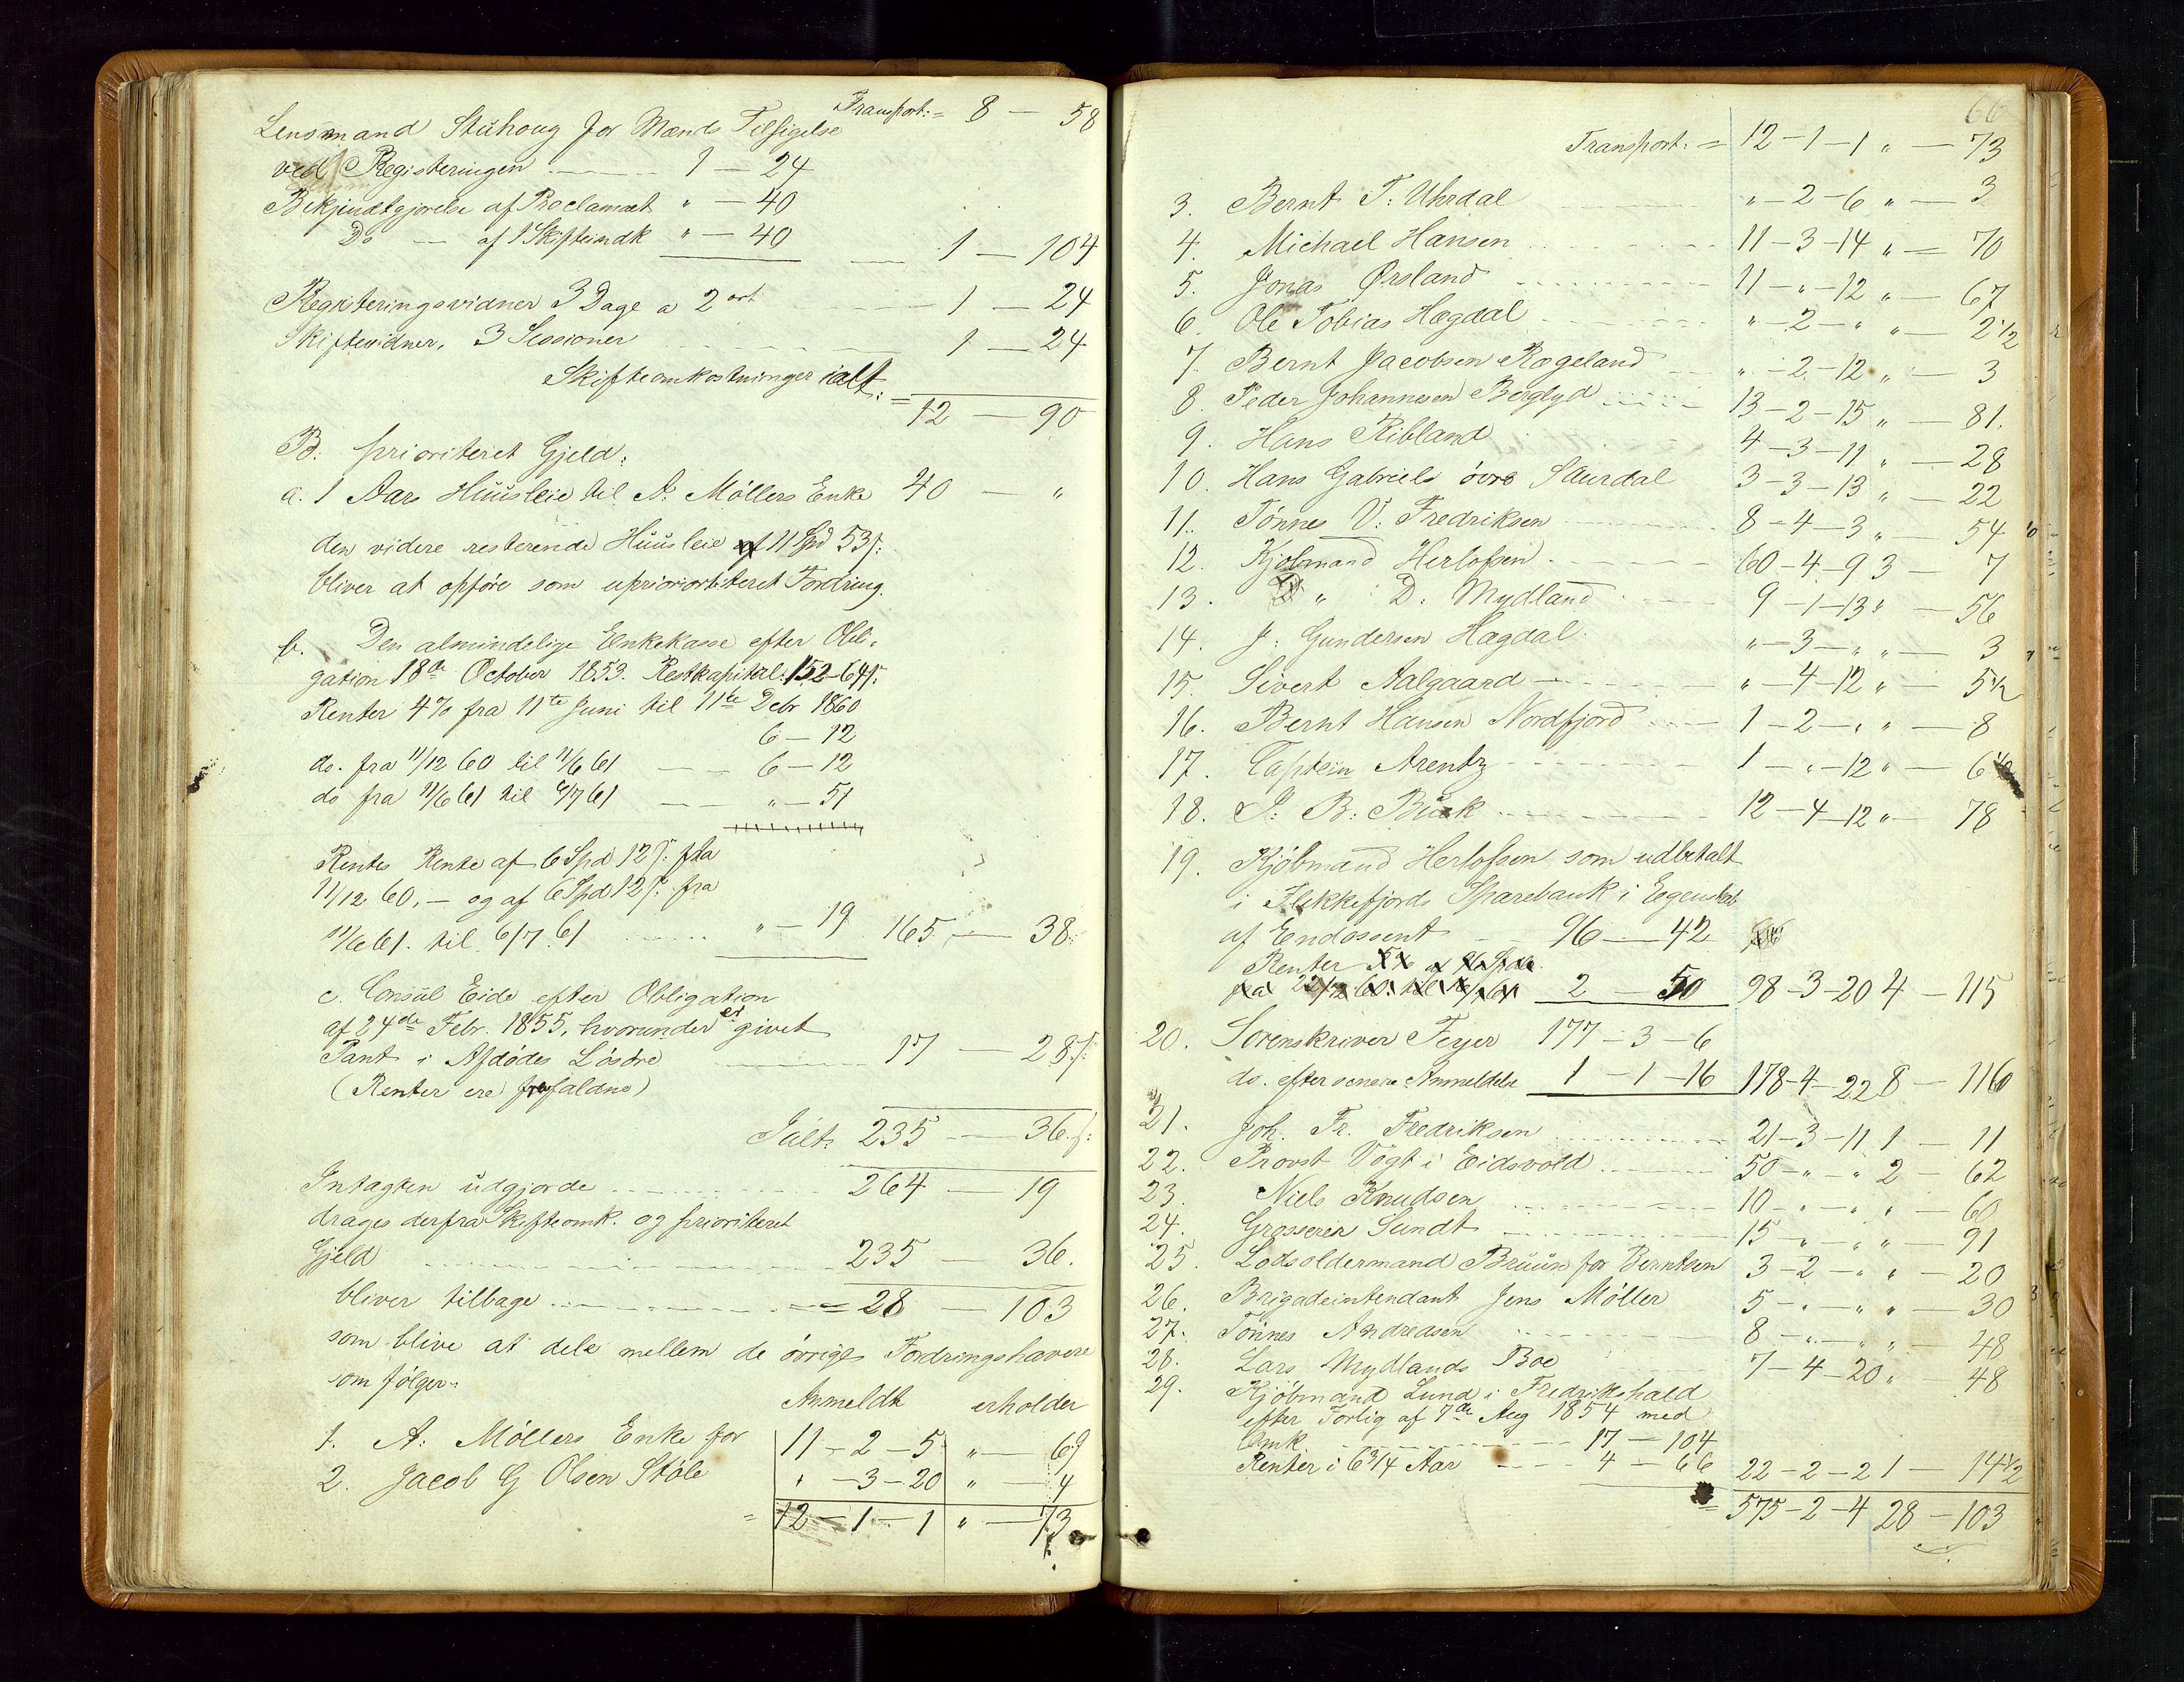 Transport: = 8 — 58
Lensmand Stuhoug for Mænds Tilsigelse
ved Registeringen 1 — 24
Bekjendtgjørelse af Proclamaet " — 40
Do — af 1 Skifteindk " — 40 1 — 104
Registeringsvidner 3 Dage a 2 ort 1 — 24
Skiftevidner, 3 Sessioner 1 — 24
Skifteomkostninger ialt: = 12 — 90
B. prioriteret Gjeld:
a. 1 Aars Huusleie til A. Møllers Enke 40 — "
den videre resterende Huusleie af 11 Spd 53 s:
bliver at opføre som uprioriteret Fordring.
b. Den almindelige Enkekasse efter Obli-
gation 18de October 1853. Restkapital: 152-64 s:
Renter 4% fra 11te Juni til 11te Debr 1860
6 — 12
do. fra 11/12 60 til 11/6 61 — 6 — 12
do fra 11/6 61 til 6/7 61 — " — 51
Rentes Rente af 6 Spd 12 s: fra
11/12 60, — og af 6 Spd 12 s: fra
11/6 61. til 6/7 61 " — 19 165 — 38
c. Consul Eide efter Obligation
af 24de Febr. 1855, hvorunder er givet
Pant i Afdødes Løsøre 17 — 28 s:
(Renter ere frafaldne)
Ialt 235 — 36 s:
Intagten udgjorde 264 — 19
drages derfra Skifteomk. og prioriteret
Gjeld 235 — 36.
bliver tilbage = 28 — 103
som blive at dele mellem de øvrige Fordringshavere
som følger:
Anmeldt erholder
1. A. Møllers Enke for 11 – 2 – 5 " — 69
2. Jacob G Olsen Støle " – 3 – 20 " — 4
= 12 – 1 – 1 " — 73
66
Transport: = 12 – 1 – 1 " — 73
3. Bernt T. Uhrdal " – 2 – 6 " — 3
4. Michael Hansen 11 – 3 – 14 " — 70
5. Jonas Ørsland 11 – " – 12 " — 67
6. Ole Tobias Hægdal " – 2 – " " — 2 1/2
7. Bernt Jacobsen Rogeland " – 2 – 12 " — 3
8. Peder Johannesen Berglyd 13 – 2 – 15 " — 81.
9. Hans Ribland 4 – 3 – 11 " — 28
10. Hans Gabriels øvre Saurdal 3 – 3 – 13 " — 22
11. Tønnes V. Fredriksen 8 – 4 – 3 " — 54
12. Kjøbmand Herlofsen 60 – 4 – 9 3 — 7
13. " D. Mydland 9 – 1 – 13 " — 56
14. J. Gundersen Hægdal " – 3 – " " — 3
15. Sivert Aalgaard " – 4 – 12 " — 5 1/2
16. Bernt Hansen Nordfjord 1 – 2 – " " — 8
17. Captein Arentz 1 – " – 12 " — 6 1/2
18. J. B. Buck 12 – 4 – 12 " — 78
19. Kjøbmand Herlofsen som udbetalt
i Flekkefjords Sparebank i Egenskab
af Endossent — 96 — 42
Renter 5% af 96 Spd
fra 22/12 60 til 2 — 50 98 – 3 – 20 4 — 115
20. Sorenskriver Feyer 177 – 3 – 6
do. efter senere Anmeldelse 1 – 1 – 16 178 – 4 – 22 8 — 116
21. Joh. Fr. Fredriksen 21 – 3 – 11 1 — 11
22. Provst Vogt i Eidsvold 50 – " – " 2 — 62
23. Niels Knudsen 10 – " – " " — 60
24. Grosserer Sundt 15 – " – " " — 91
25. Lodsoldermand Bruun for Berntsen 3 – 2 – " " — 20
26. Brigadeintendant Jens Møller 5 – " – " " — 30
27. Tønnes Andreasen 8 – " – " " — 48
28. Lars Mydlands Boe 7 – 4 – 20 " — 48
29. Kjøbmand Lund i Fredrikshald
efter Forlig af 7de Aug 1854 med
Omk 17 — 104
Renter i 6 3/4 Aar 4 — 66 22 – 2 – 2 1 — 14 1/2
= 575 – 2 – 4 28 — 103